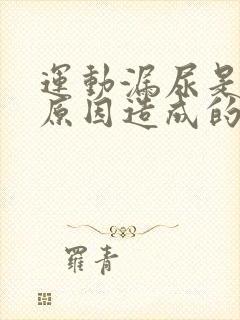 運動漏尿是
原因造成的
羅青